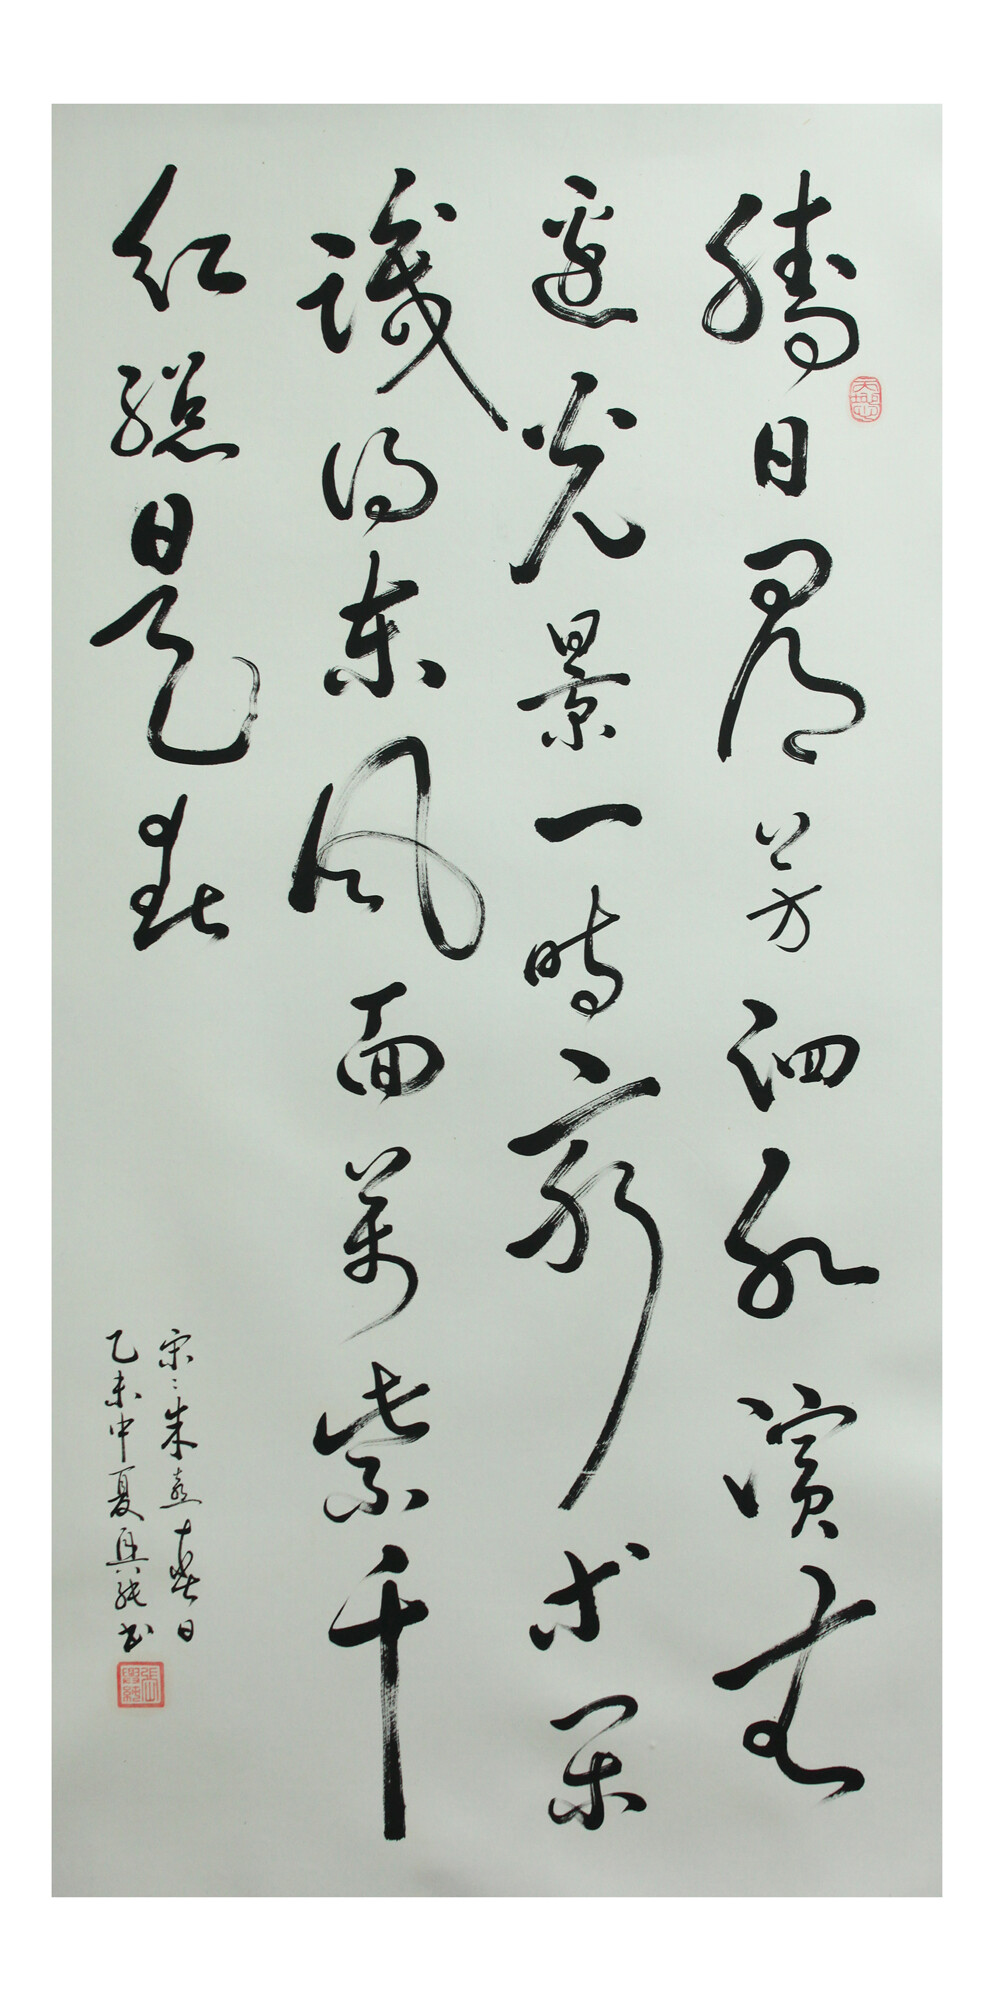 勝日尋芳泗水濱無
邊光景一時新等閑
識得東風面萬紫千
紅總是春
宋:朱熹春日
乙未中夏興书